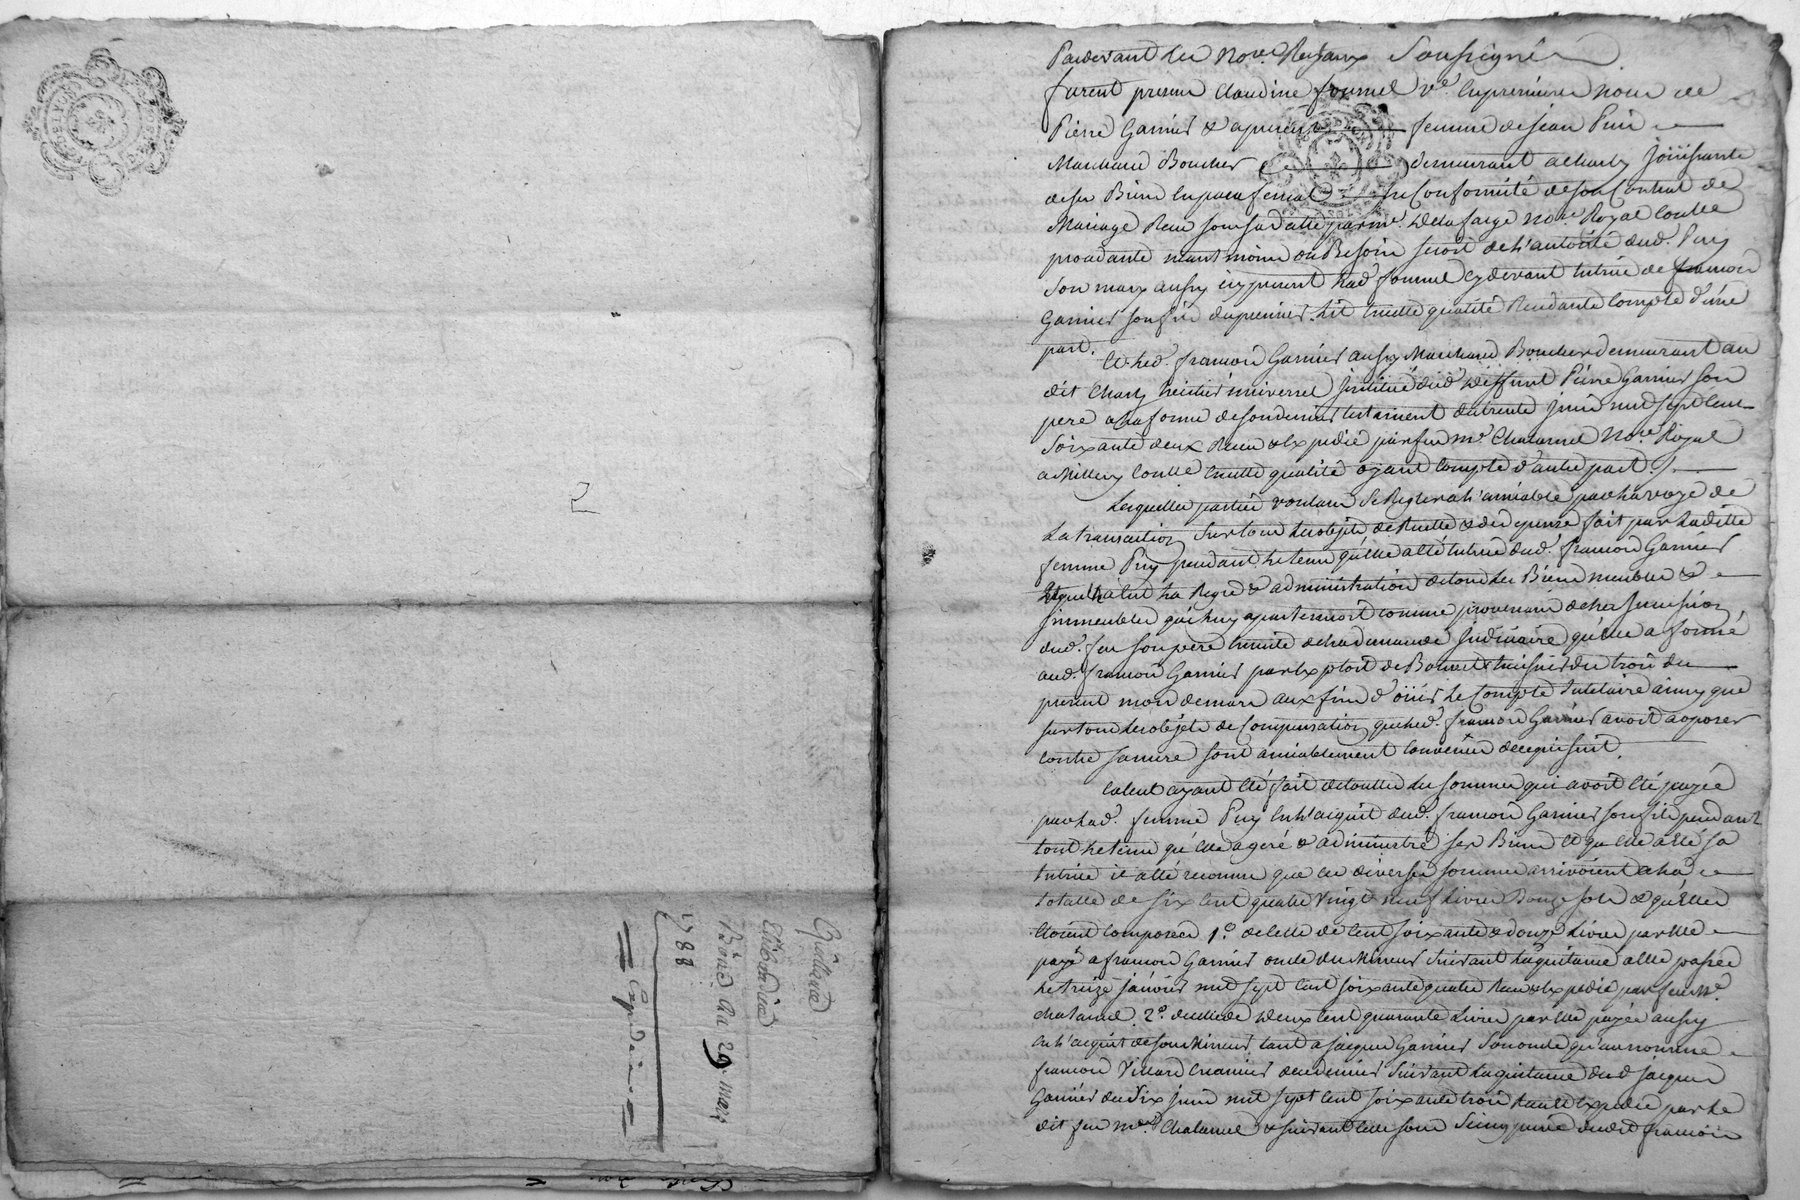 2
1788
29 mars
Pardevant les No.re Royaux Soussignés
furent presens Claudine fournel v.e en premieres noces de
Pierre Garnier & apresent femme de jean Puis
Marchand Boucher demeurant a Charly Joüissante
de ses Biens en paraphernal en Conformité de son Contrat de
Mariage Receu sous sa datte par m.e Delafarge No.re Royal Laditte
procedante neantmoins où Besoin seroit de L'autorité dud. Puy
son mary aussy icy present Lad. fournel cydevant tutrice de françois
Garnier son fils du premier Lit en cette qualité Rendante Compte d'une
part.
Et Led. françois Garnier aussy Marchand Boucher demeurant au
dit Charly heritier universel institué dud. deffunt Pierre Garnier son
pere a la forme de son dernier testament du trente juin mil sept cent
soixante deux Receu & Expedié par feu m.e Chatanel No.re Royal
a Millery en cette qualité oyant Compte d'autre part.
Lesquelles parties voulant se Regler a L'amiable par la voye de
La transaction sur tous les objets de Recette & de depense fait par Laditte
femme Puy pendant le tems qu'elle a été tutrice dud. françois Garnier
& qu'elle a eut La Regie & administration de tous les Biens meubles &
immeubles qui luy apartenoit comme provenant de la succession
dud. feu son pere ensuite de la demande judiciaire qu'elle a formé
aud. françois Garnier par Exploit de huissier du trois du
present mois de mars aux fins d'oüir le Compte tutelaire ainsy que
sur tous les objets de Compensation que led. françois Garnier avoit a oposer
contre sa mere sont amiablement convenües de ce qui suit
Calcul ayant été fait de toutes les sommes qui avoit été payée
par lad. femme Puy en L'acquit dud. françois Garnier son fils pendant
tout le tems qu'elle a geré & administré ses Biens et qu'elle a été sa
tutrice il a été reconnu que ces diverses sommes arrivoient a la
totalle de six cent quatre vingt neuf Livres Douze sols & qu'elles
étoient composées 1.o de celle de Cent soixante & douze Livres par elle
payé a françois Garnier oncle du Mineur suivant la quitance a elle passée
le treize janvier mil sept cent soixante quatre Receu & Expedié par feu M.e
Chatanel 2.o de celle de deux cent quarante Livres par elle payée aussy
en L'acquit de son Mineur tant a jacques Garnier son oncle qu'au nommé
françois Villard Creancier de ce dernier suivant la quitance dud. jacques
Garnier du six juin mil sept cent soixante trois Receu & Expedié par le
dit feu m.e Chatanel & suivant celle sous seing privé dudit françois